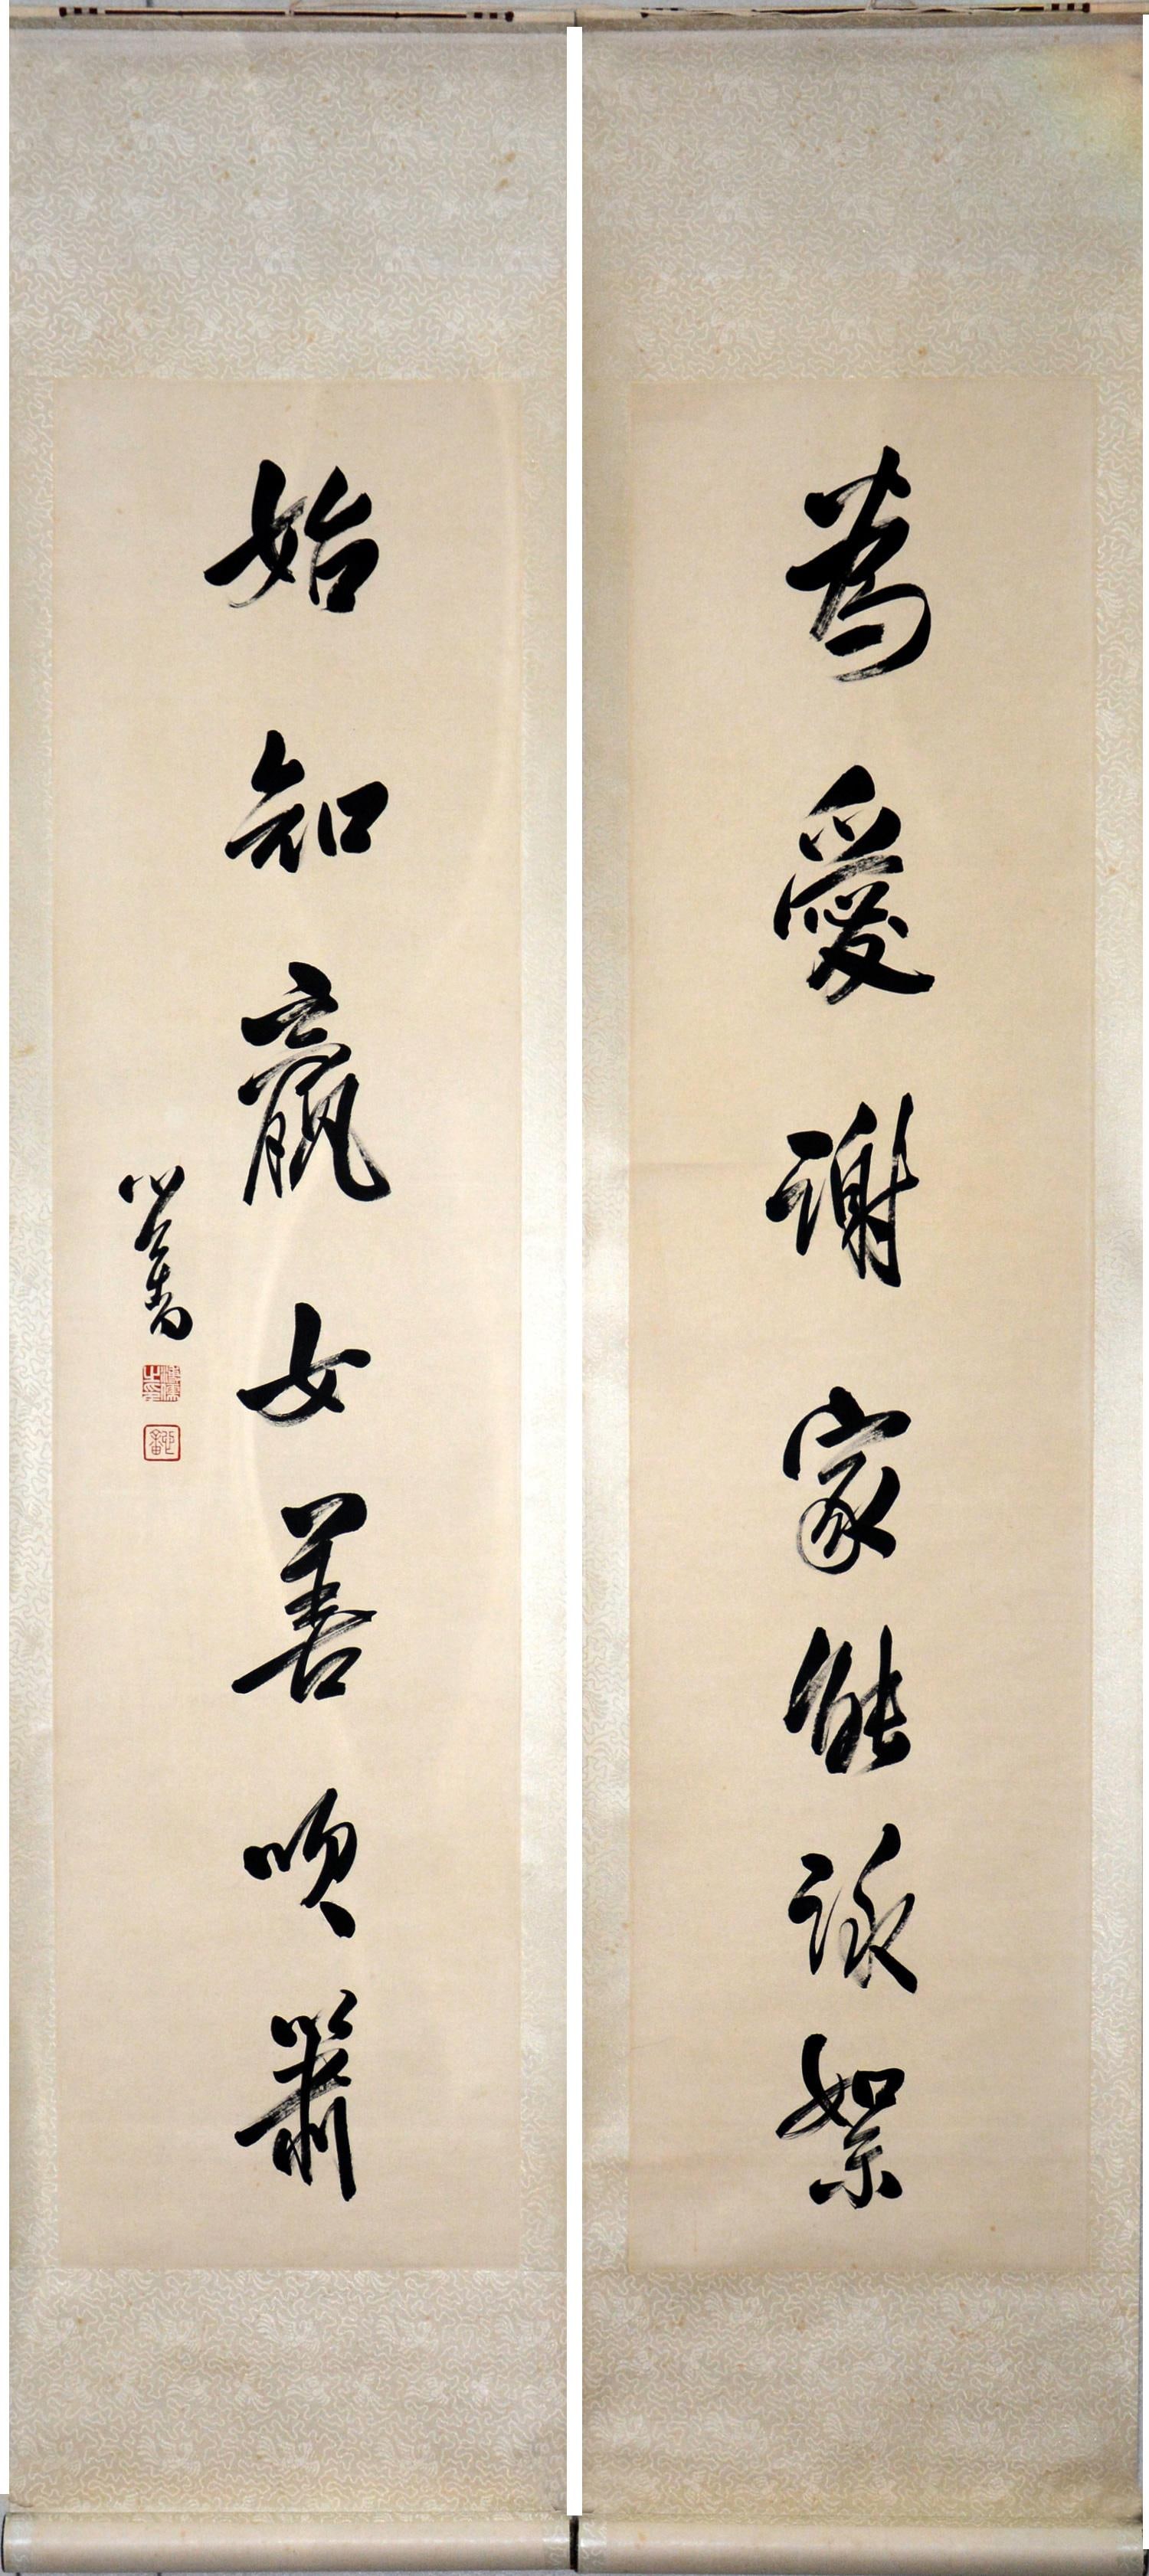 為愛謝家能詠絮
始知嬴女善吹簫
心畬